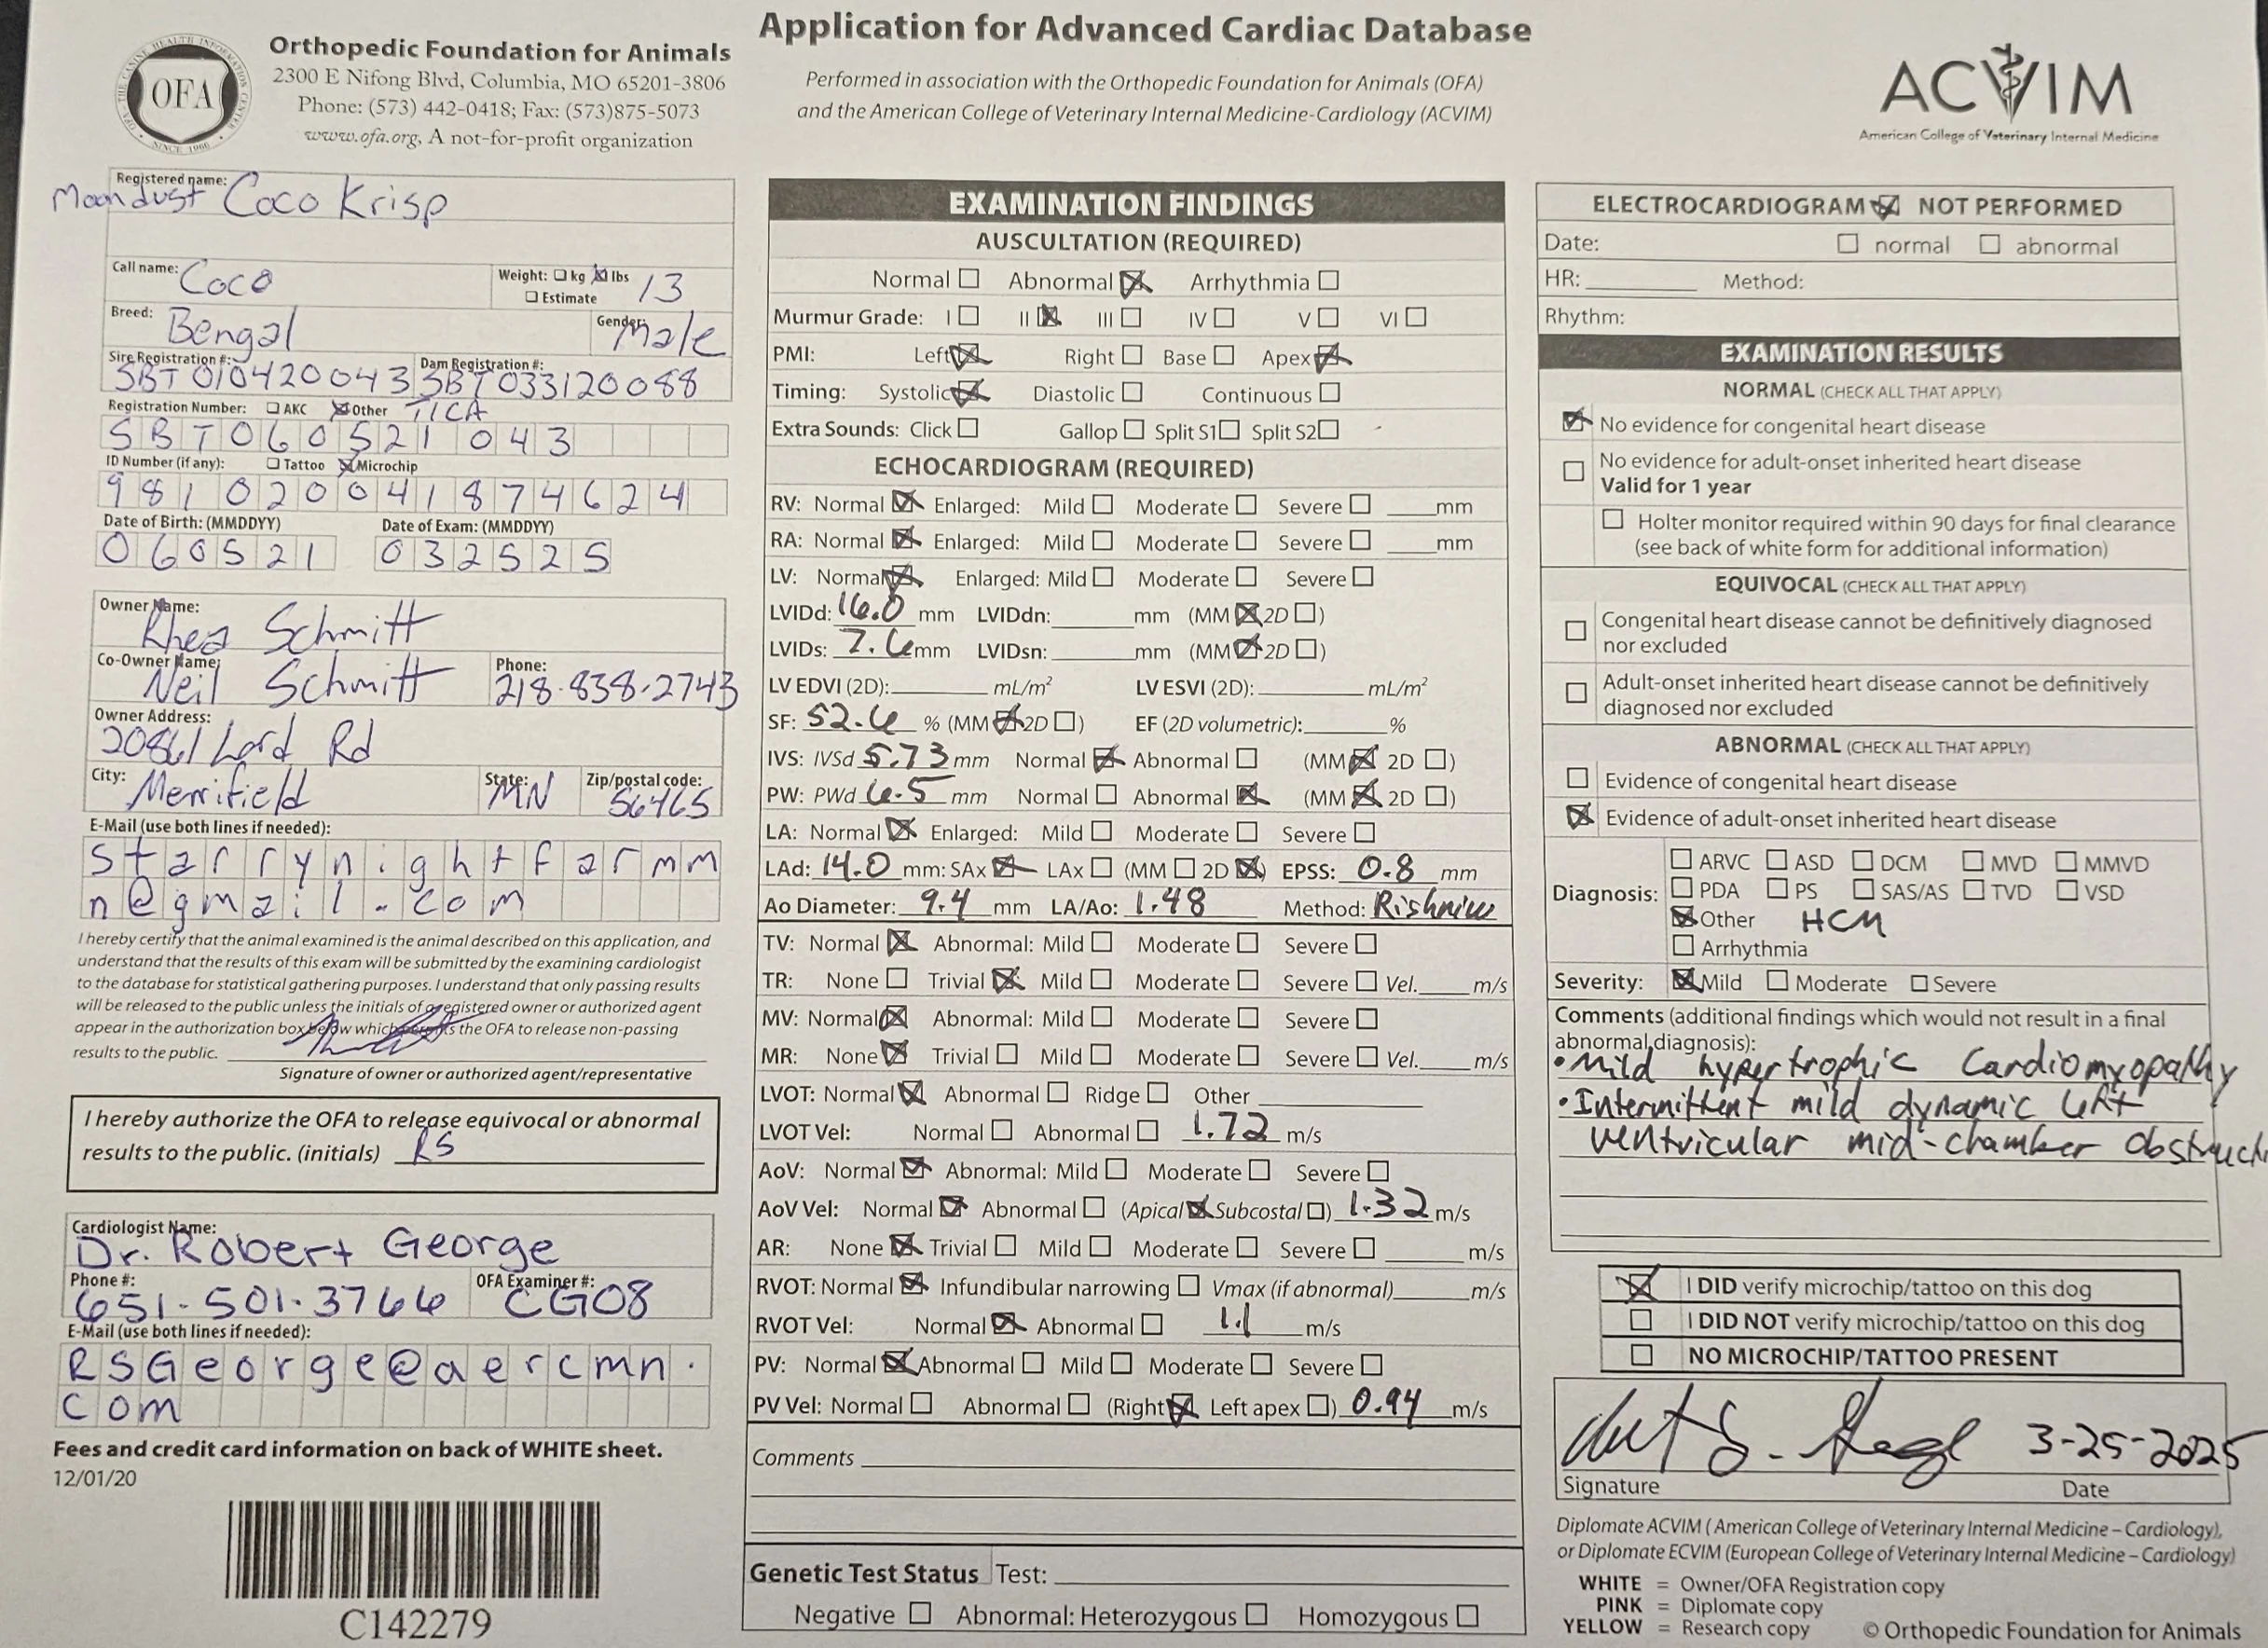 Application for Advanced Cardiac Database
Performed in association with the Orthopedic Foundation for Animals (OFA)
and the American College of Veterinary Internal Medicine-Cardiology (ACVIM)
OFA
THE CANINE HEALTH INFORMATION CENTER
SINCE 1966
Orthopedic Foundation for Animals
2300 E Nifong Blvd, Columbia, MO 65201-3806
Phone: (573) 442-0418; Fax: (573)875-5073
www.ofa.org, A not-for-profit organization
ACVIM
American College of Veterinary Internal Medicine
Registered name:
Moondust Coco Krisp
Call name: Coco Weight: ☐ kg ☒ lbs 13
☐ Estimate
Breed: Bengal Gender: Male
Sire Registration #: SBT 010420043 Dam Registration #: SBT 033120088
Registration Number: ☐ AKC ☒ Other TICA
SBT060521 043
ID Number (if any): ☐ Tattoo ☒ Microchip
981020041874624
Date of Birth: (MMDDYY) Date of Exam: (MMDDYY)
060521 032525
Owner Name:
Rhea Schmitt
Co-Owner Name: Phone:
Neil Schmitt 218-838-2743
Owner Address:
20861 Lord Rd
City: State: Zip/postal code:
Merrifield MN 56465
E-Mail (use both lines if needed):
starrynightfarmm
n@gmail.com
I hereby certify that the animal examined is the animal described on this application, and
understand that the results of this exam will be submitted by the examining cardiologist
to the database for statistical gathering purposes. I understand that only passing results
will be released to the public unless the initials of a registered owner or authorized agent
appear in the authorization box below which permits the OFA to release non-passing
results to the public.
Signature of owner or authorized agent/representative
I hereby authorize the OFA to release equivocal or abnormal
results to the public. (initials) RS
Cardiologist Name:
Dr. Robert George
Phone #: OFA Examiner #:
651-501-3766 CG08
E-Mail (use both lines if needed):
RSGeorge@aercmn.
com
Fees and credit card information on back of WHITE sheet.
12/01/20
C142279
EXAMINATION FINDINGS
AUSCULTATION (REQUIRED)
Normal ☐ Abnormal ☒ Arrhythmia ☐
Murmur Grade: I ☐ II ☒ III ☐ IV ☐ V ☐ VI ☐
PMI: Left ☒ Right ☐ Base ☐ Apex ☒
Timing: Systolic ☒ Diastolic ☐ Continuous ☐
Extra Sounds: Click ☐ Gallop ☐ Split S1 ☐ Split S2 ☐
ECHOCARDIOGRAM (REQUIRED)
RV: Normal ☒ Enlarged: Mild ☐ Moderate ☐ Severe ☐ ____mm
RA: Normal ☒ Enlarged: Mild ☐ Moderate ☐ Severe ☐ ____mm
LV: Normal ☒ Enlarged: Mild ☐ Moderate ☐ Severe ☐
LVIDd: 16.0 mm LVIDdn: ____ mm (MM ☒ 2D ☐)
LVIDs: 7.6 mm LVIDsn: ____ mm (MM ☒ 2D ☐)
LV EDVI (2D): ____ mL/m² LV ESVI (2D): ____ mL/m²
SF: 52.6 % (MM ☒ 2D ☐) EF (2D volumetric): ____ %
IVS: IVSd 5.73 mm Normal ☒ Abnormal ☐ (MM ☒ 2D ☐)
PW: PWd 6.5 mm Normal ☐ Abnormal ☒ (MM ☒ 2D ☐)
LA: Normal ☒ Enlarged: Mild ☐ Moderate ☐ Severe ☐
LAd: 14.0 mm: SAx ☒ LAx ☐ (MM ☐ 2D ☒) EPSS: 0.8 mm
Ao Diameter: 9.4 mm LA/Ao: 1.48 Method: Rishniw
TV: Normal ☒ Abnormal: Mild ☐ Moderate ☐ Severe ☐
TR: None ☐ Trivial ☒ Mild ☐ Moderate ☐ Severe ☐ Vel. ____ m/s
MV: Normal ☒ Abnormal: Mild ☐ Moderate ☐ Severe ☐
MR: None ☒ Trivial ☐ Mild ☐ Moderate ☐ Severe ☐ Vel. ____ m/s
LVOT: Normal ☒ Abnormal ☐ Ridge ☐ Other ____
LVOT Vel: Normal ☐ Abnormal ☐ 1.72 m/s
AoV: Normal ☒ Abnormal: Mild ☐ Moderate ☐ Severe ☐
AoV Vel: Normal ☒ Abnormal ☐ (Apical ☒ Subcostal ☐) 1.32 m/s
AR: None ☒ Trivial ☐ Mild ☐ Moderate ☐ Severe ☐ ____ m/s
RVOT: Normal ☒ Infundibular narrowing ☐ Vmax (if abnormal) ____ m/s
RVOT Vel: Normal ☒ Abnormal ☐ 1.1 m/s
PV: Normal ☒ Abnormal ☐ Mild ☐ Moderate ☐ Severe ☐
PV Vel: Normal ☐ Abnormal ☐ (Right ☒ Left apex ☐) 0.94 m/s
Comments
Genetic Test Status Test:
Negative ☐ Abnormal: Heterozygous ☐ Homozygous ☐
ELECTROCARDIOGRAM ☒ NOT PERFORMED
Date: ☐ normal ☐ abnormal
HR: ____ Method:
Rhythm:
EXAMINATION RESULTS
NORMAL (CHECK ALL THAT APPLY)
☒ No evidence for congenital heart disease
☐ No evidence for adult-onset inherited heart disease
Valid for 1 year
☐ Holter monitor required within 90 days for final clearance
(see back of white form for additional information)
EQUIVOCAL (CHECK ALL THAT APPLY)
☐ Congenital heart disease cannot be definitively diagnosed
nor excluded
☐ Adult-onset inherited heart disease cannot be definitively
diagnosed nor excluded
ABNORMAL (CHECK ALL THAT APPLY)
☐ Evidence of congenital heart disease
☒ Evidence of adult-onset inherited heart disease
☐ ARVC ☐ ASD ☐ DCM ☐ MVD ☐ MMVD
Diagnosis: ☐ PDA ☐ PS ☐ SAS/AS ☐ TVD ☐ VSD
☒ Other HCM
☐ Arrhythmia
Severity: ☒ Mild ☐ Moderate ☐ Severe
Comments (additional findings which would not result in a final
abnormal diagnosis):
• Mild hypertrophic Cardiomyopathy
• Intermittent mild dynamic left
ventricular mid-chamber obstructi
☒ I DID verify microchip/tattoo on this dog
☐ I DID NOT verify microchip/tattoo on this dog
☐ NO MICROCHIP/TATTOO PRESENT
3-25-2025
Signature Date
Diplomate ACVIM (American College of Veterinary Internal Medicine – Cardiology),
or Diplomate ECVIM (European College of Veterinary Internal Medicine – Cardiology)
WHITE = Owner/OFA Registration copy
PINK = Diplomate copy
YELLOW = Research copy
© Orthopedic Foundation for Animals